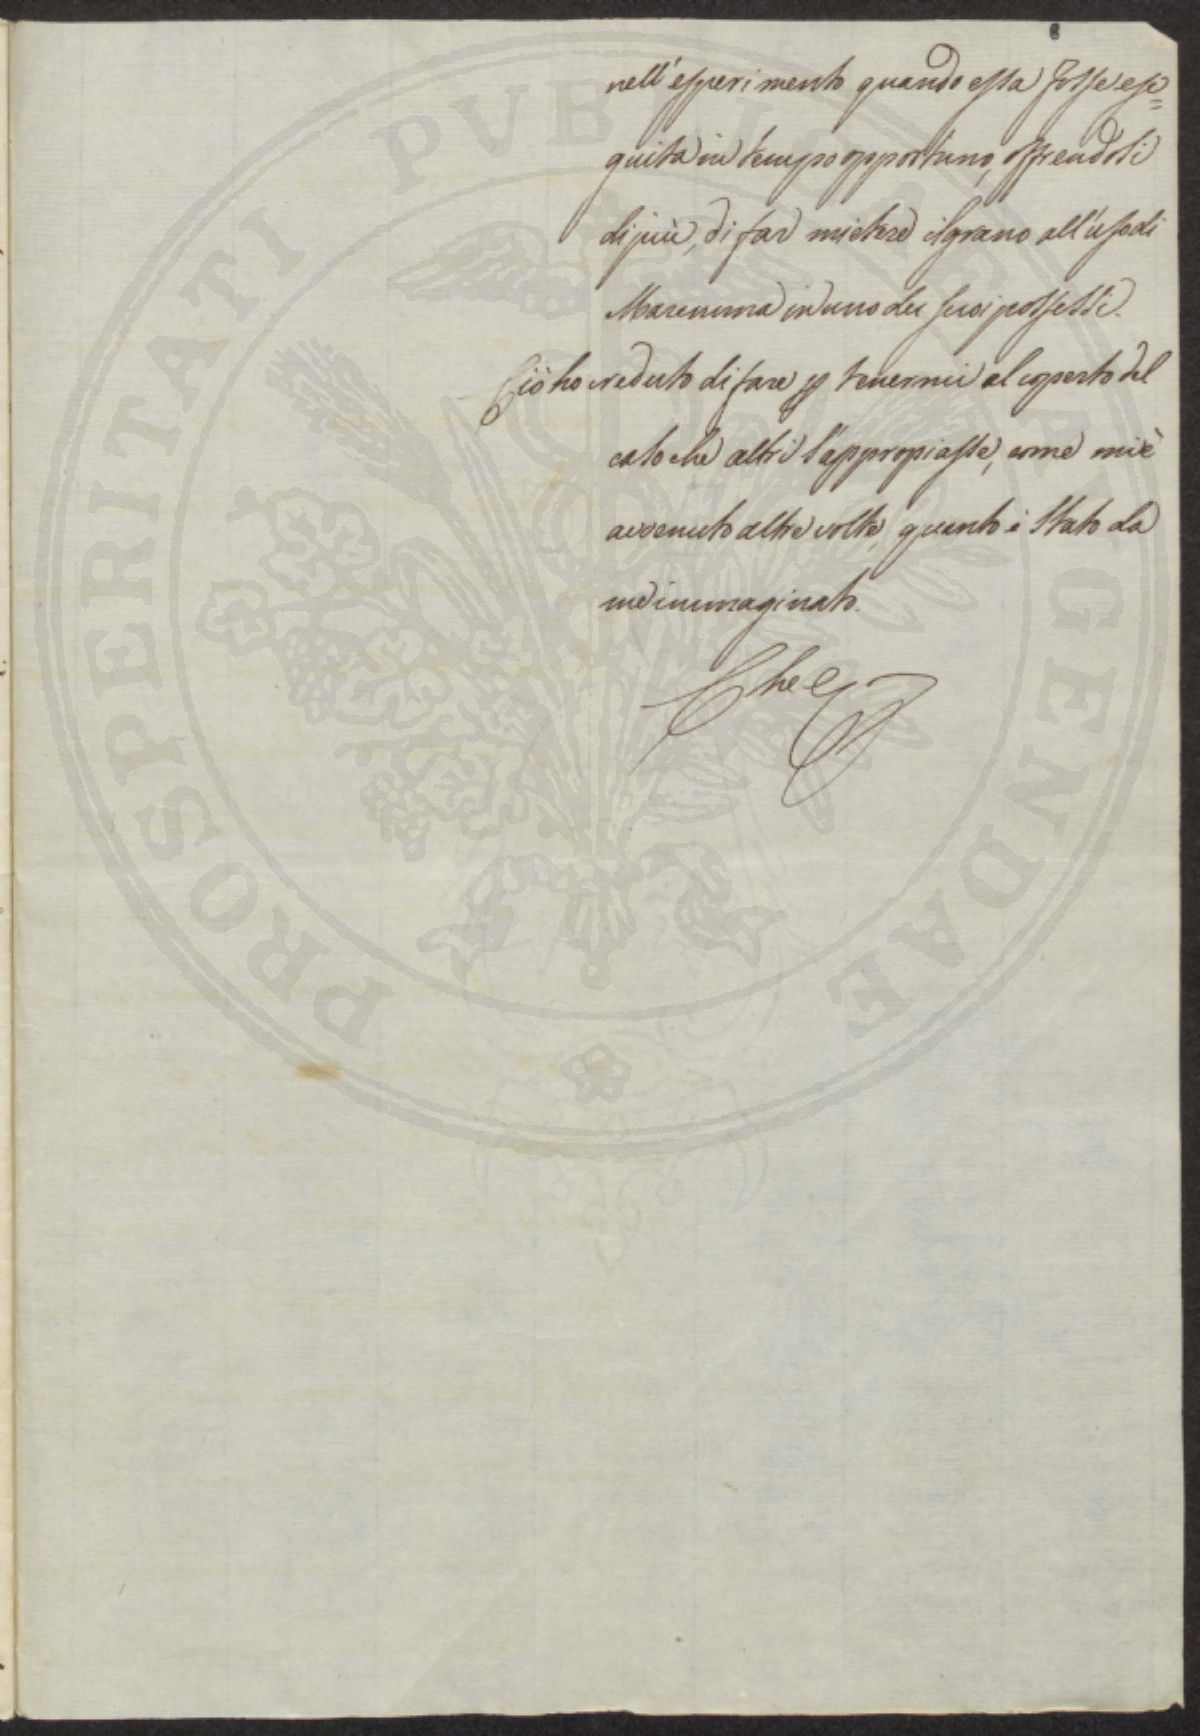 nell'esperimento quando essa fosse ese=
guita in tempo opportuno, offrendosi
di più, di far mietere il grano all'uso di
Maremma in uno dei suoi possessi.
Ciò ho creduto di fare p tenermi al coperto del
caso che altri s'appropiasse, come mi è
avvenuto altre volte, quanto è stato da
me immaginato.
Che &
PROSPERITATI PUBLICAE AUGENDAE